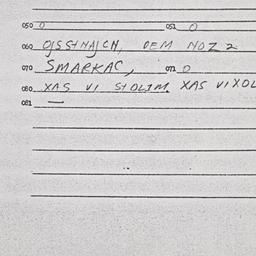 050 0 051 0
060 OJSSTNAJCN, DEM NOZ 2
070 SMARKAC, 071 0
080 XAS VI STOLIM. XAS VIXOL
081 —